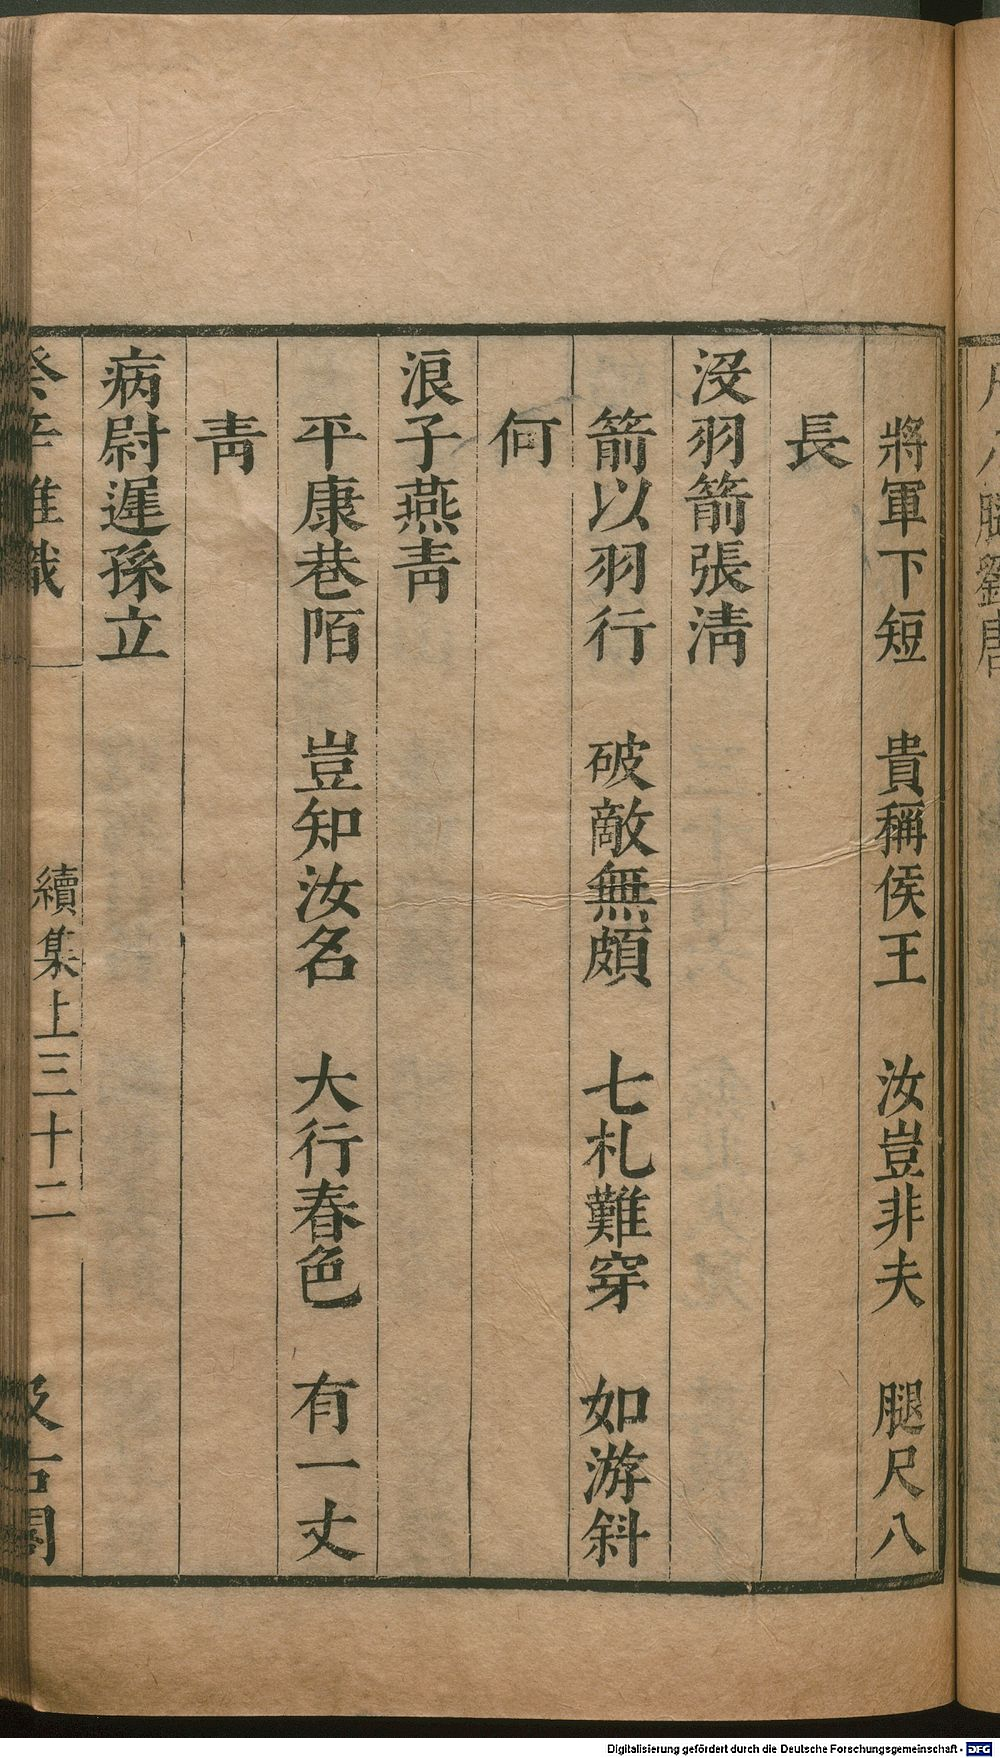 尺八腿劉唐
將軍下短 貴稱侯王 汝豈非夫 腿尺八
長
沒羽箭張淸
箭以羽行 破敵無頗 七札難穿 如游斜
何
浪子燕靑
平康巷陌 豈知汝名 大行春色 有一丈
靑
病尉遲孫立
癸辛雜識
續集上三十二
汲古閣
Digitalisierung gefördert durch die Deutsche Forschungsgemeinschaft - DFG